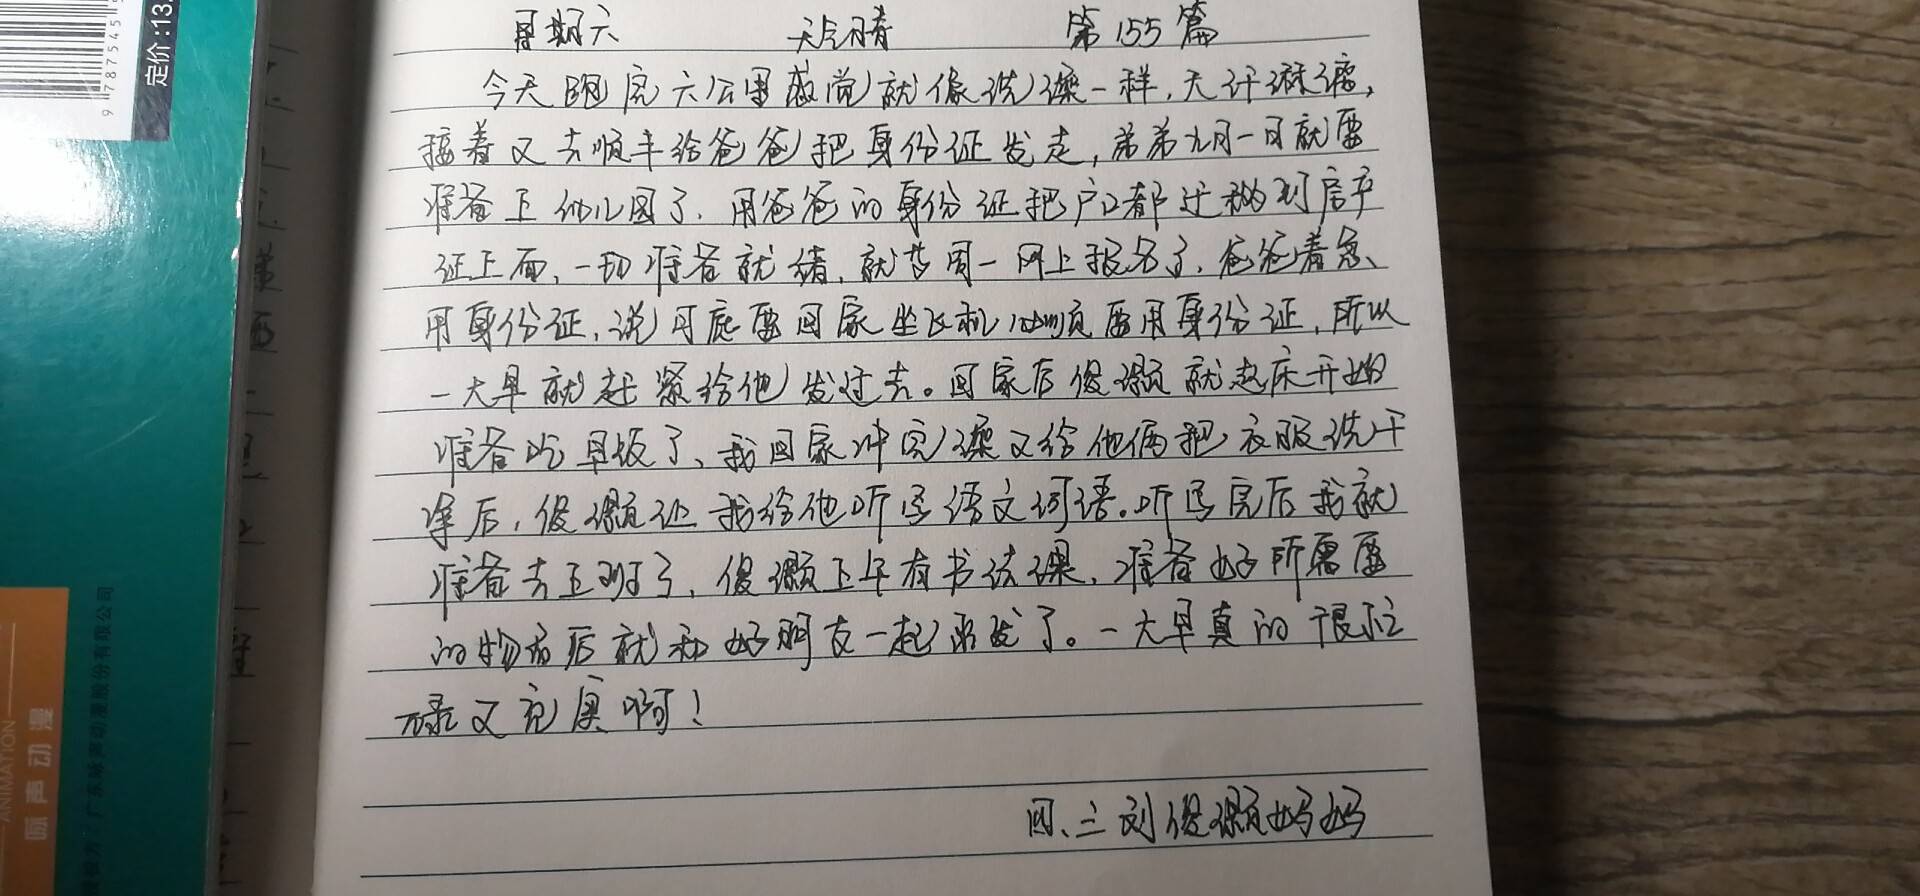 星期六 天气晴 第155篇
今天跑完六公里感觉就像洗澡一样，大汗淋漓，
接着又去顺丰给爸爸把身份证发走，弟弟九月一日就要
准备上幼儿园了，用爸爸的身份证把户口都迁移到房产
证上面，一切准备就绪，就等周一网上报名了，爸爸着急
用身份证，说月底要回家坐飞机必须要用身份证，所以
一大早就赶紧给他发过去。回家后俊灏就起床开始
准备吃早饭了，我回家冲完澡又给他俩把衣服洗干
净后，俊灏让我给他听写语文词语。听写完后我就
准备去上班了，俊灏上午有书法课，准备好所需要
的物品后就和好朋友一起出发了。一大早真的很忙
碌又充实啊！
四、三刘俊灏妈妈
定价:13.
9 787545
ANIMATION
声动漫
广东咏声动漫股份有限公司